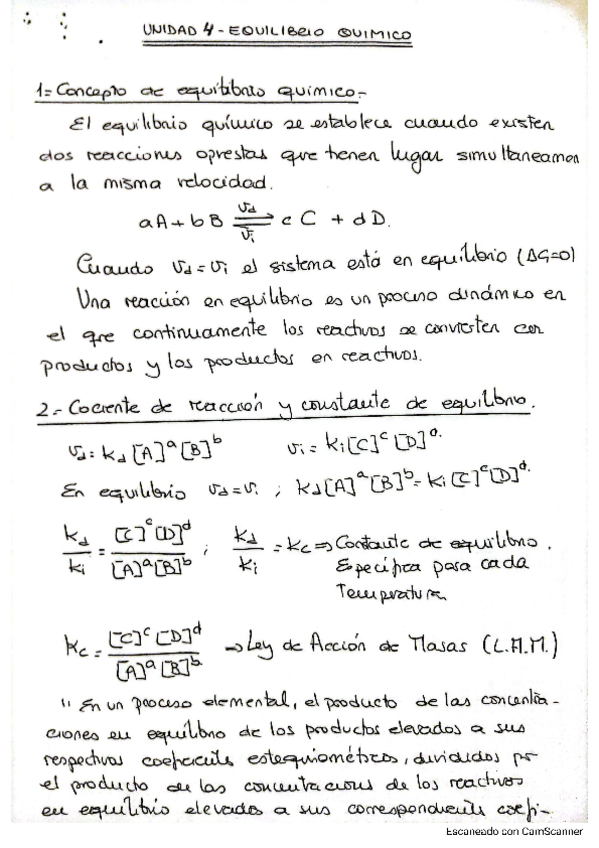 UNIDAD 4 - EQUILIBRIO QUIMICO
1= Concepto de equilibrio quimico.-
El equilibrio químico se establece cuando existen
dos reacciones opuestas que tienen lugar simultaneamen
a la misma velocidad.
aA + bB ⇌ cC + dD.
Cuando vd = vi el sistema está en equilibrio (ΔG=0)
Una reacción en equilibrio es un proceso dinámico en
el que continuamente los reactivos se convierten en
productos y los productos en reactivos.
2.- Cociente de reacción y constante de equilibrio.
vd = kd [A]^a [B]^b vi = ki [C]^c [D]^d.
En equilibrio vd = vi ; kd [A]^a [B]^b = ki [C]^c [D]^d.
kd/ki = [C]^c [D]^d / [A]^a [B]^b ; kd/ki = Kc ⇒ Constante de equilibrio.
Específica para cada
Temperatura
Kc = [C]^c [D]^d / [A]^a [B]^b → Ley de Acción de Masas (L.A.M.)
" En un proceso elemental, el producto de las concentra-
ciones en equilibrio de los productos elevados a sus
respectivos coeficientes estequiométricos, divididos por
el producto de las concentraciones de los reactivos
en equilibrio elevados a sus correspondientes coefi-
Escaneado con CamScanner